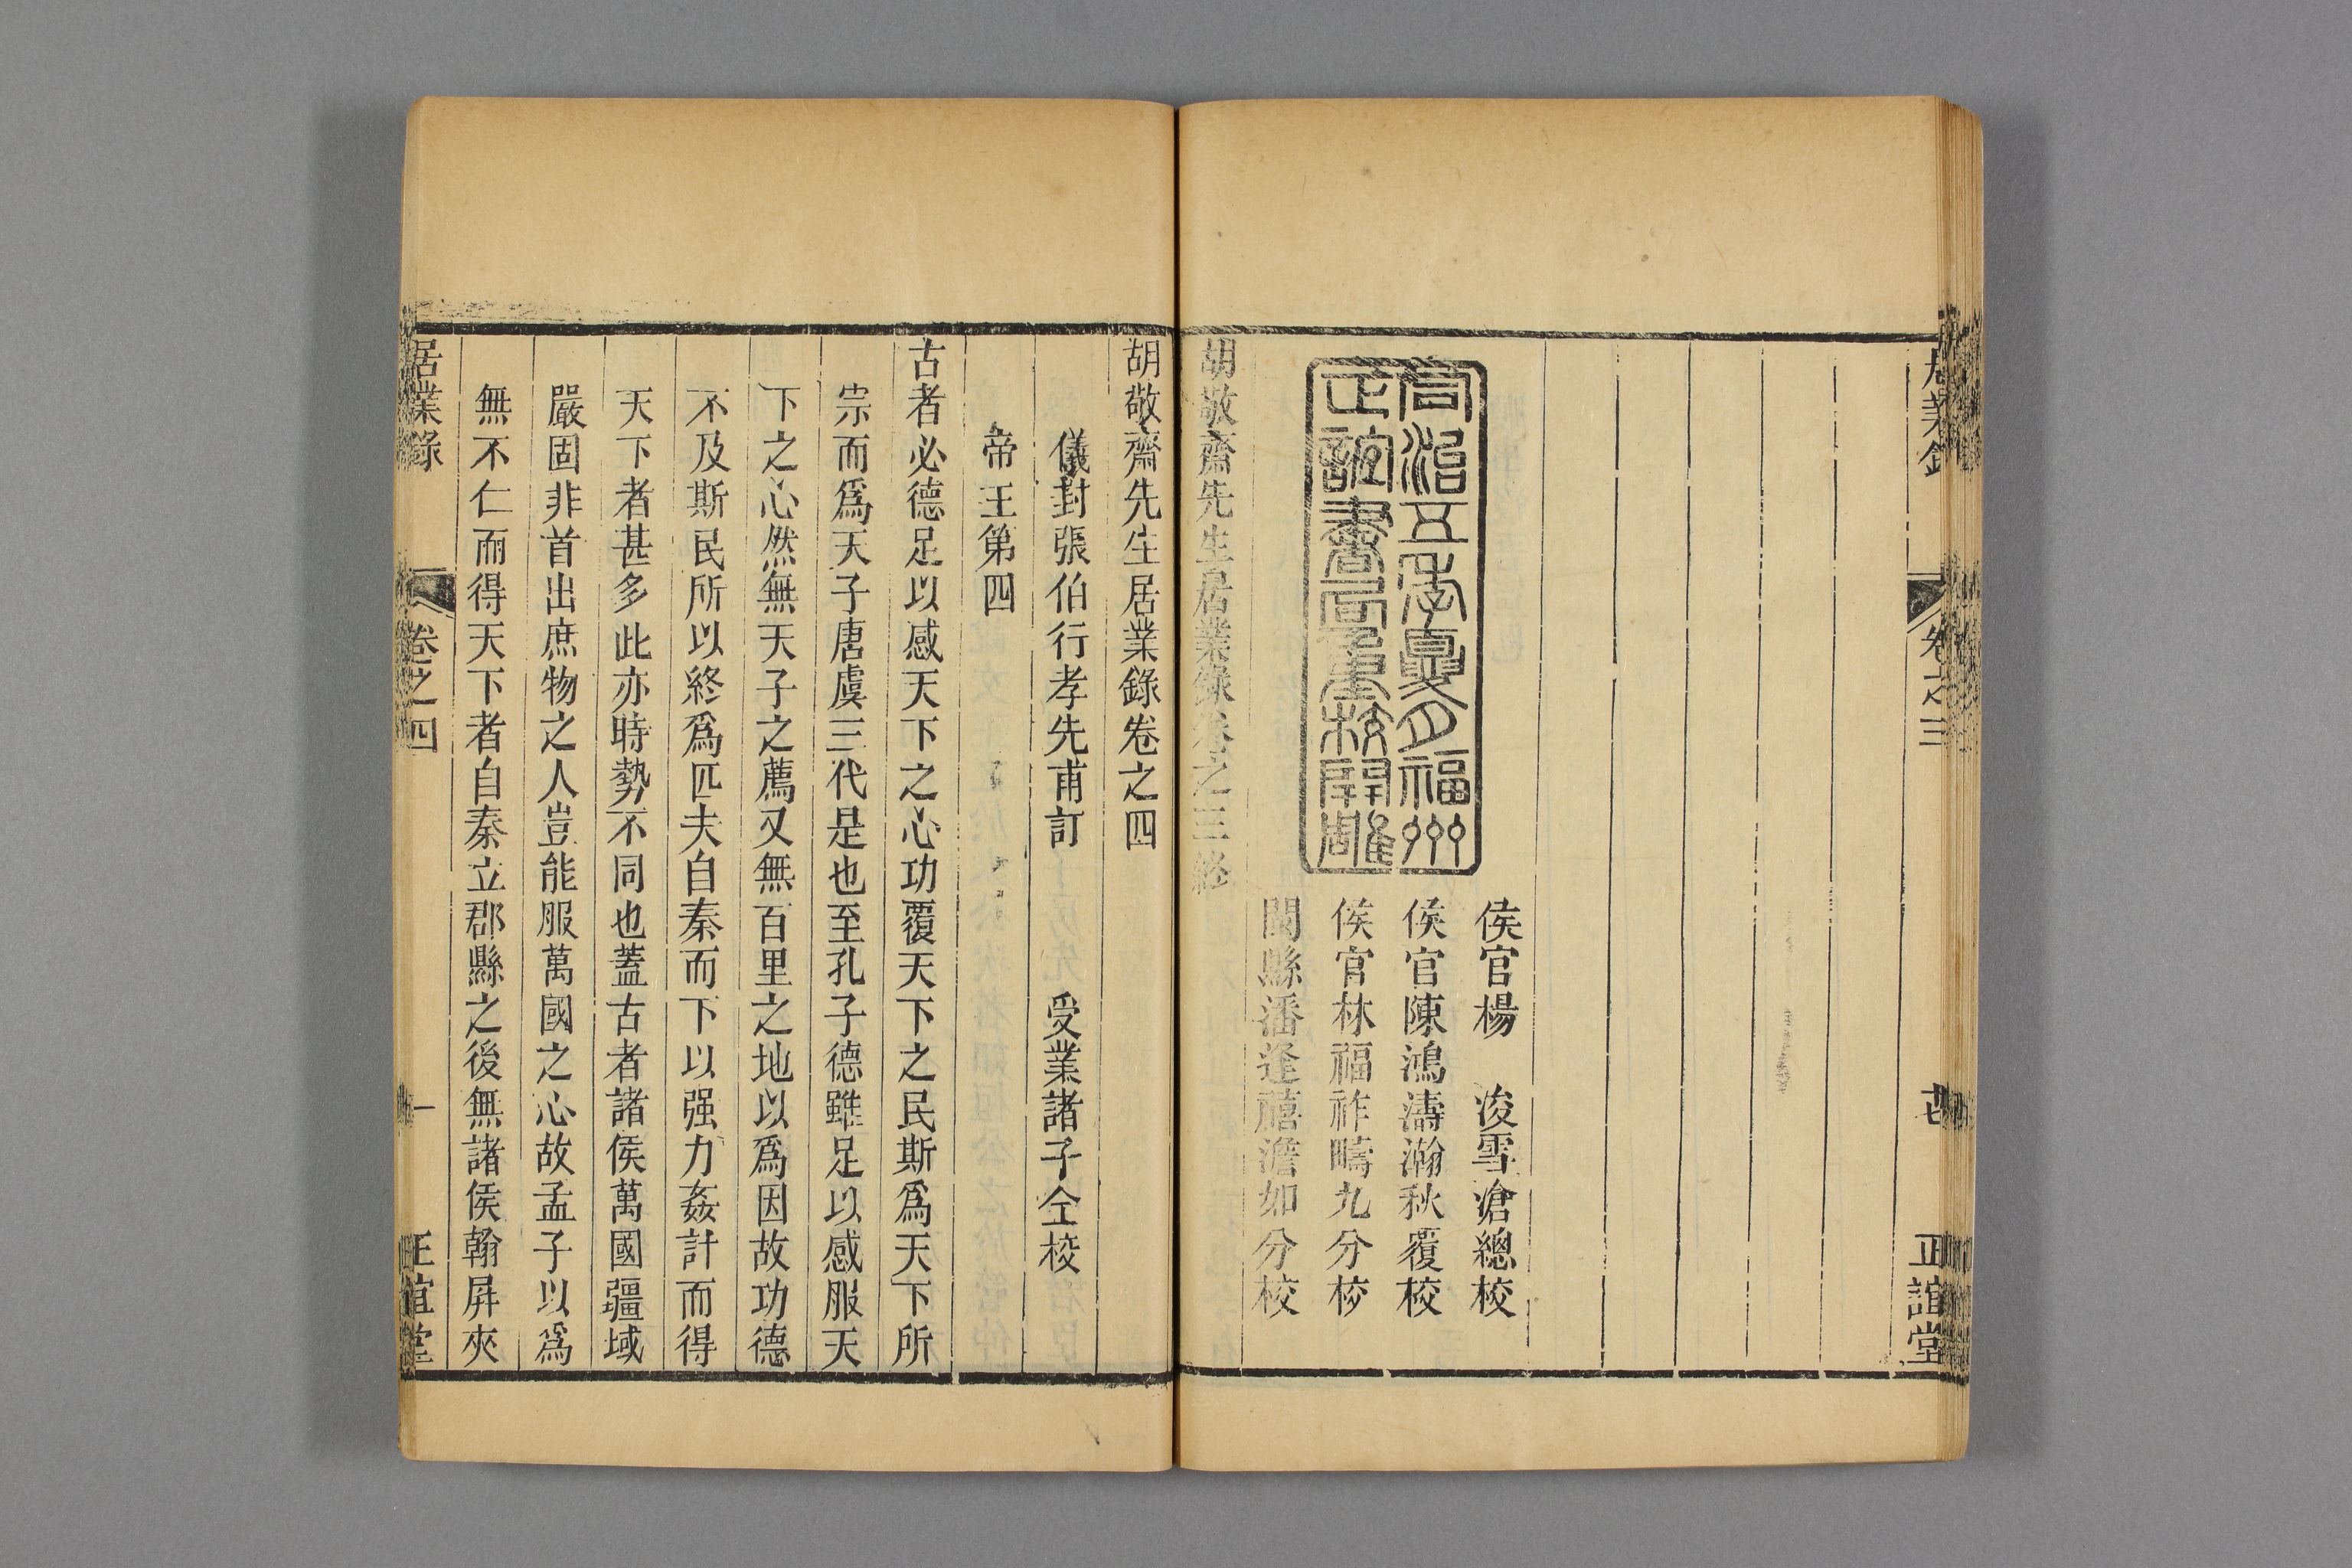 居業錄 卷之三 正誼堂
侯官楊 浚雪滄總校
侯官陳鴻濤瀚秋覆校
侯官林福祚疇九分校
閩縣潘逢禧澹如分校
同治五年夏月福州
正誼書局重校開雕
胡敬齋先生居業錄卷之三終
胡敬齋先生居業錄卷之四
儀封張伯行孝先甫訂 受業諸子仝校
帝王第四
古者必德足以感天下之心功覆天下之民斯爲天下所
宗而爲天子唐虞三代是也至孔子德雖足以感服天
下之心然無天子之薦又無百里之地以爲因故功德
不及斯民所以終爲匹夫自秦而下以强力姦計而得
天下者甚多此亦時勢不同也蓋古者諸侯萬國疆域
嚴固非首出庶物之人豈能服萬國之心故孟子以爲
無不仁而得天下者自秦立郡縣之後無諸侯翰屏夾
居業錄 卷之四 一 正誼堂